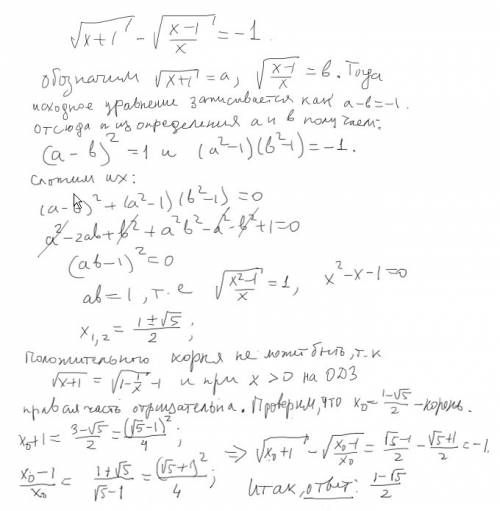 √(x+1) - √((x-1)/x) = -1
обозначим √(x+1) = a, √((x-1)/x) = в. Тогда
исходное уравнение записывается как a-в=-1.
отсюда и из определения a и в получаем:
(a-в)² = 1 и (a²-1)(в²-1) = -1.
Сложим их:
(a-в)² + (a²-1)(в²-1) = 0
a² - 2aв + в² + a²в² - a² - в² + 1 = 0
(aв-1)² = 0
aв = 1, т.е √((x²-1)/x) = 1, x²-x-1=0
x₁,₂ = (1±√5)/2;
Положительного корня не может быть, т.к
√(x+1) = √(1-1/x) - 1 и при x > 0 на ОДЗ
правая часть отрицательна. Проверим, что x₀ = (1-√5)/2 - корень.
x₀+1 = (3-√5)/2 = (√5-1)²/4; => √(x₀+1) - √((x₀-1)/x₀) = (√5-1)/2 - (√5+1)/2 = -1.
(x₀-1)/x₀ = (1+√5)/(√5-1) = (√5+1)²/4; Итак, ответ: (1-√5)/2